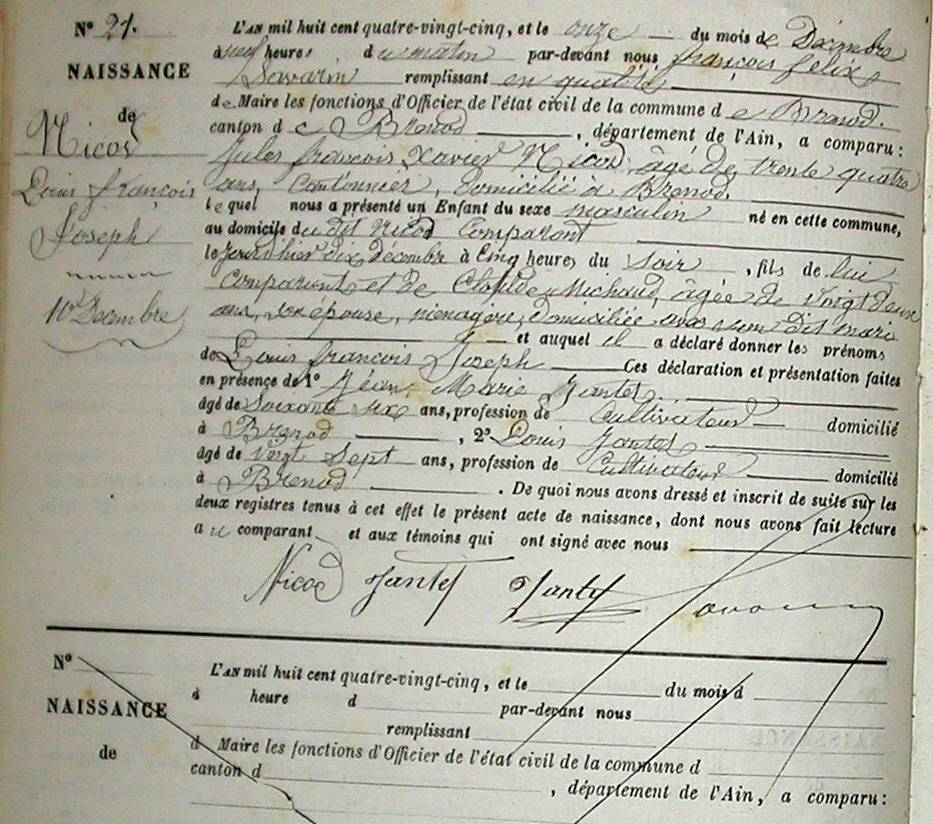 N° 21.
NAISSANCE
de
Nicod
Louis françois
Joseph
10 Decembre
L'AN mil huit cent quatre-vingt-cinq, et le onze du mois de Décembre
à neuf heures du matin par-devant nous françois felix
Savarin remplissant en qualité
de Maire les fonctions d'Officier de l'état civil de la commune de Brenod.
canton de Brenod, département de l'Ain, a comparu :
Jules françois Xavier Nicod, âgé de trente quatre
ans, Cantonnier, domicilié à Brenod.
lequel nous a présenté un Enfant du sexe masculin né en cette commune,
au domicile du dit Nicod Comparant
le jour d'hier dix Décembre à Cinq heures du soir, fils de lui
Comparant et de Clotilde Michaud, âgée de vingt deux
ans, son épouse, ménagère, domiciliée avec son dit mari
et auquel il a déclaré donner les prénoms
de Louis françois Joseph Ces déclaration et présentation faites
en présence de 1° Jean Marie Jantet
âgé de Soixante six ans, profession de Cultivateur domicilié
à Brenod, 2° Louis Jantet
âgé de vingt sept ans, profession de Cultivateur domicilié
à Brenod. De quoi nous avons dressé et inscrit de suite sur les
deux registres tenus à cet effet le présent acte de naissance, dont nous avons fait lecture
au comparant et aux témoins qui ont signé avec nous
Nicod Jantet Jantet Savarin
N°
NAISSANCE
de
L'AN mil huit cent quatre-vingt-cinq, et le du mois d
à heure d par-devant nous
remplissant
d Maire les fonctions d'Officier de l'état civil de la commune d
canton d , département de l'Ain, a comparu :